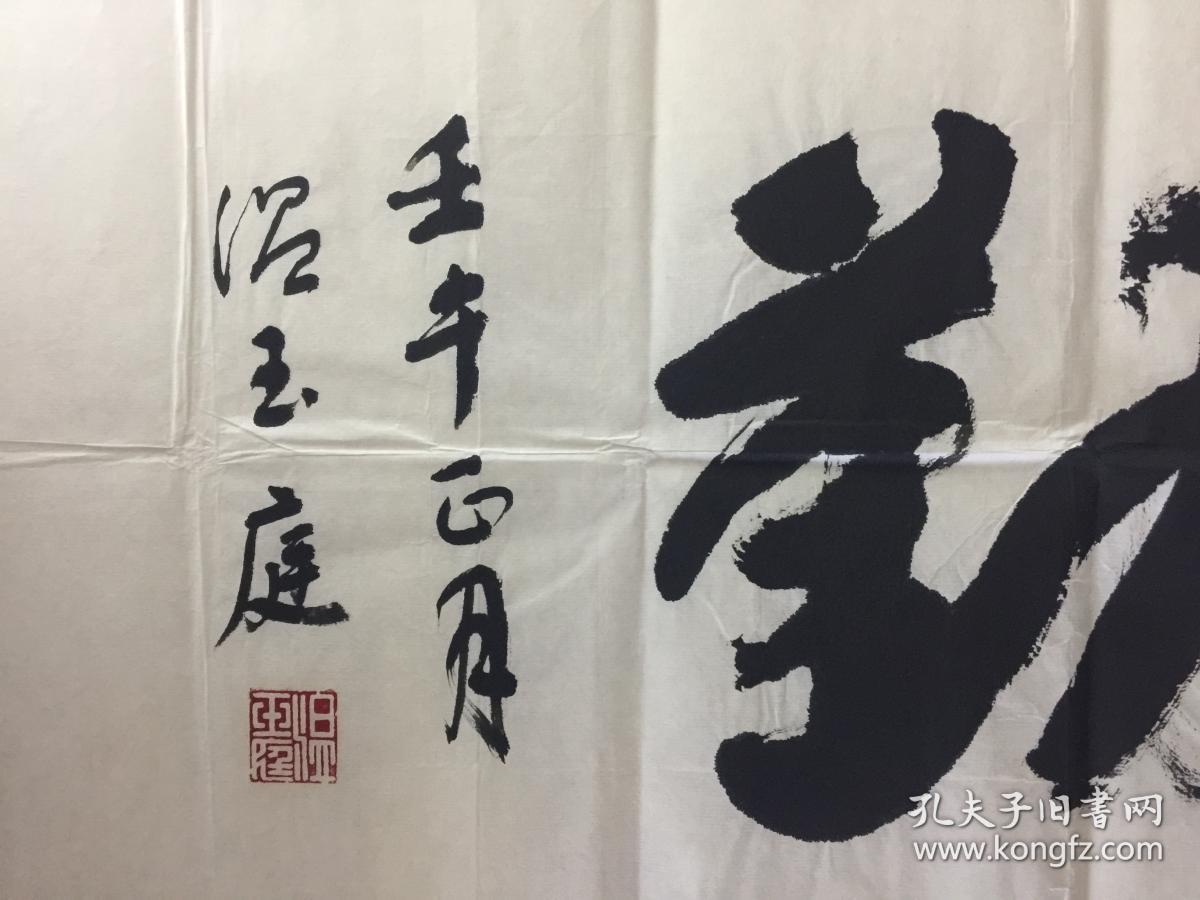 壬午正月
温玉庭
孔夫子旧书网
www.kongfz.com